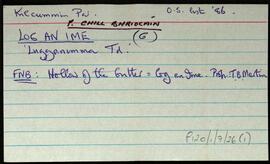 Kilcummin Par. O.S. List '86
P. CHILL BHRIOCAIN
LOG AN IME (G)
'Lugganimma Td.'
FNB: Hollow of the butter = Log an Ime. Prof. T.S. Martin
P120/1/3/26(1)